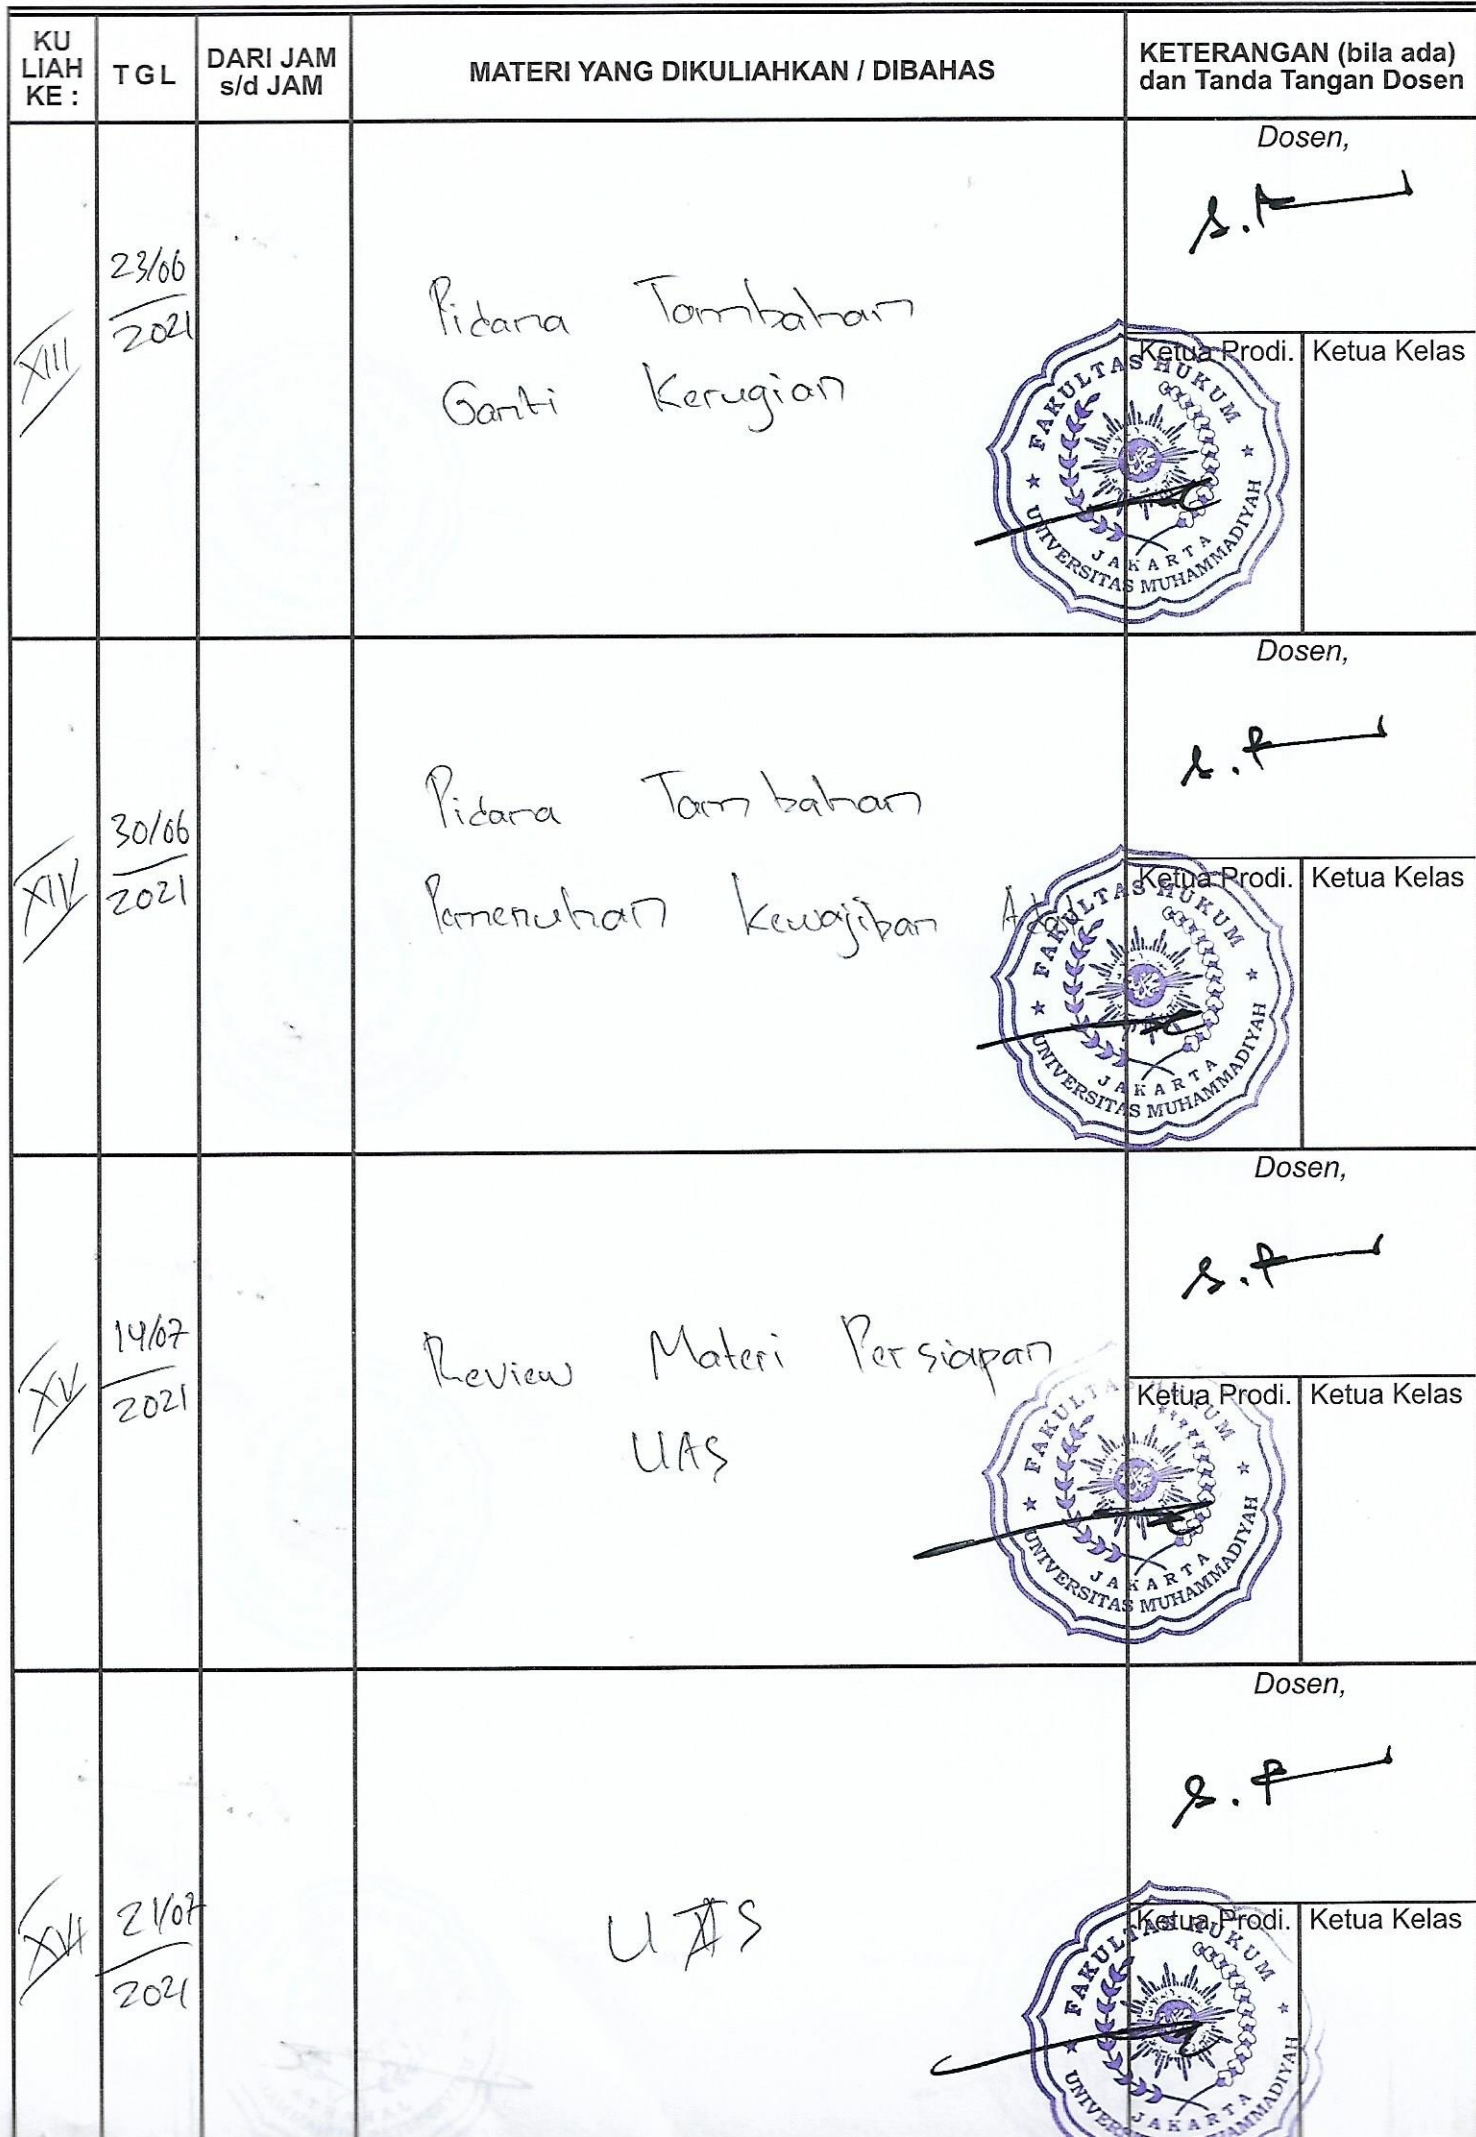 KU
LIAH
KE :
TGL
DARI JAM
s/d JAM
MATERI YANG DIKULIAHKAN / DIBAHAS
KETERANGAN (bila ada)
dan Tanda Tangan Dosen
XIII
23/06
2021
Pidana Tambahan
Ganti Kerugian
Dosen,
Ketua Prodi.
Ketua Kelas
FAKULTAS HUKUM
JAKARTA
UNIVERSITAS MUHAMMADIYAH
XIV
30/06
2021
Pidana Tambahan
Pemenuhan Kewajiban Adat
Dosen,
Ketua Prodi.
Ketua Kelas
FAKULTAS HUKUM
JAKARTA
UNIVERSITAS MUHAMMADIYAH
XV
14/07
2021
Review Materi Persiapan
UAS
Dosen,
Ketua Prodi.
Ketua Kelas
FAKULTAS HUKUM
JAKARTA
UNIVERSITAS MUHAMMADIYAH
XVI
21/07
2021
UAS
Dosen,
Ketua Prodi.
Ketua Kelas
FAKULTAS HUKUM
JAKARTA